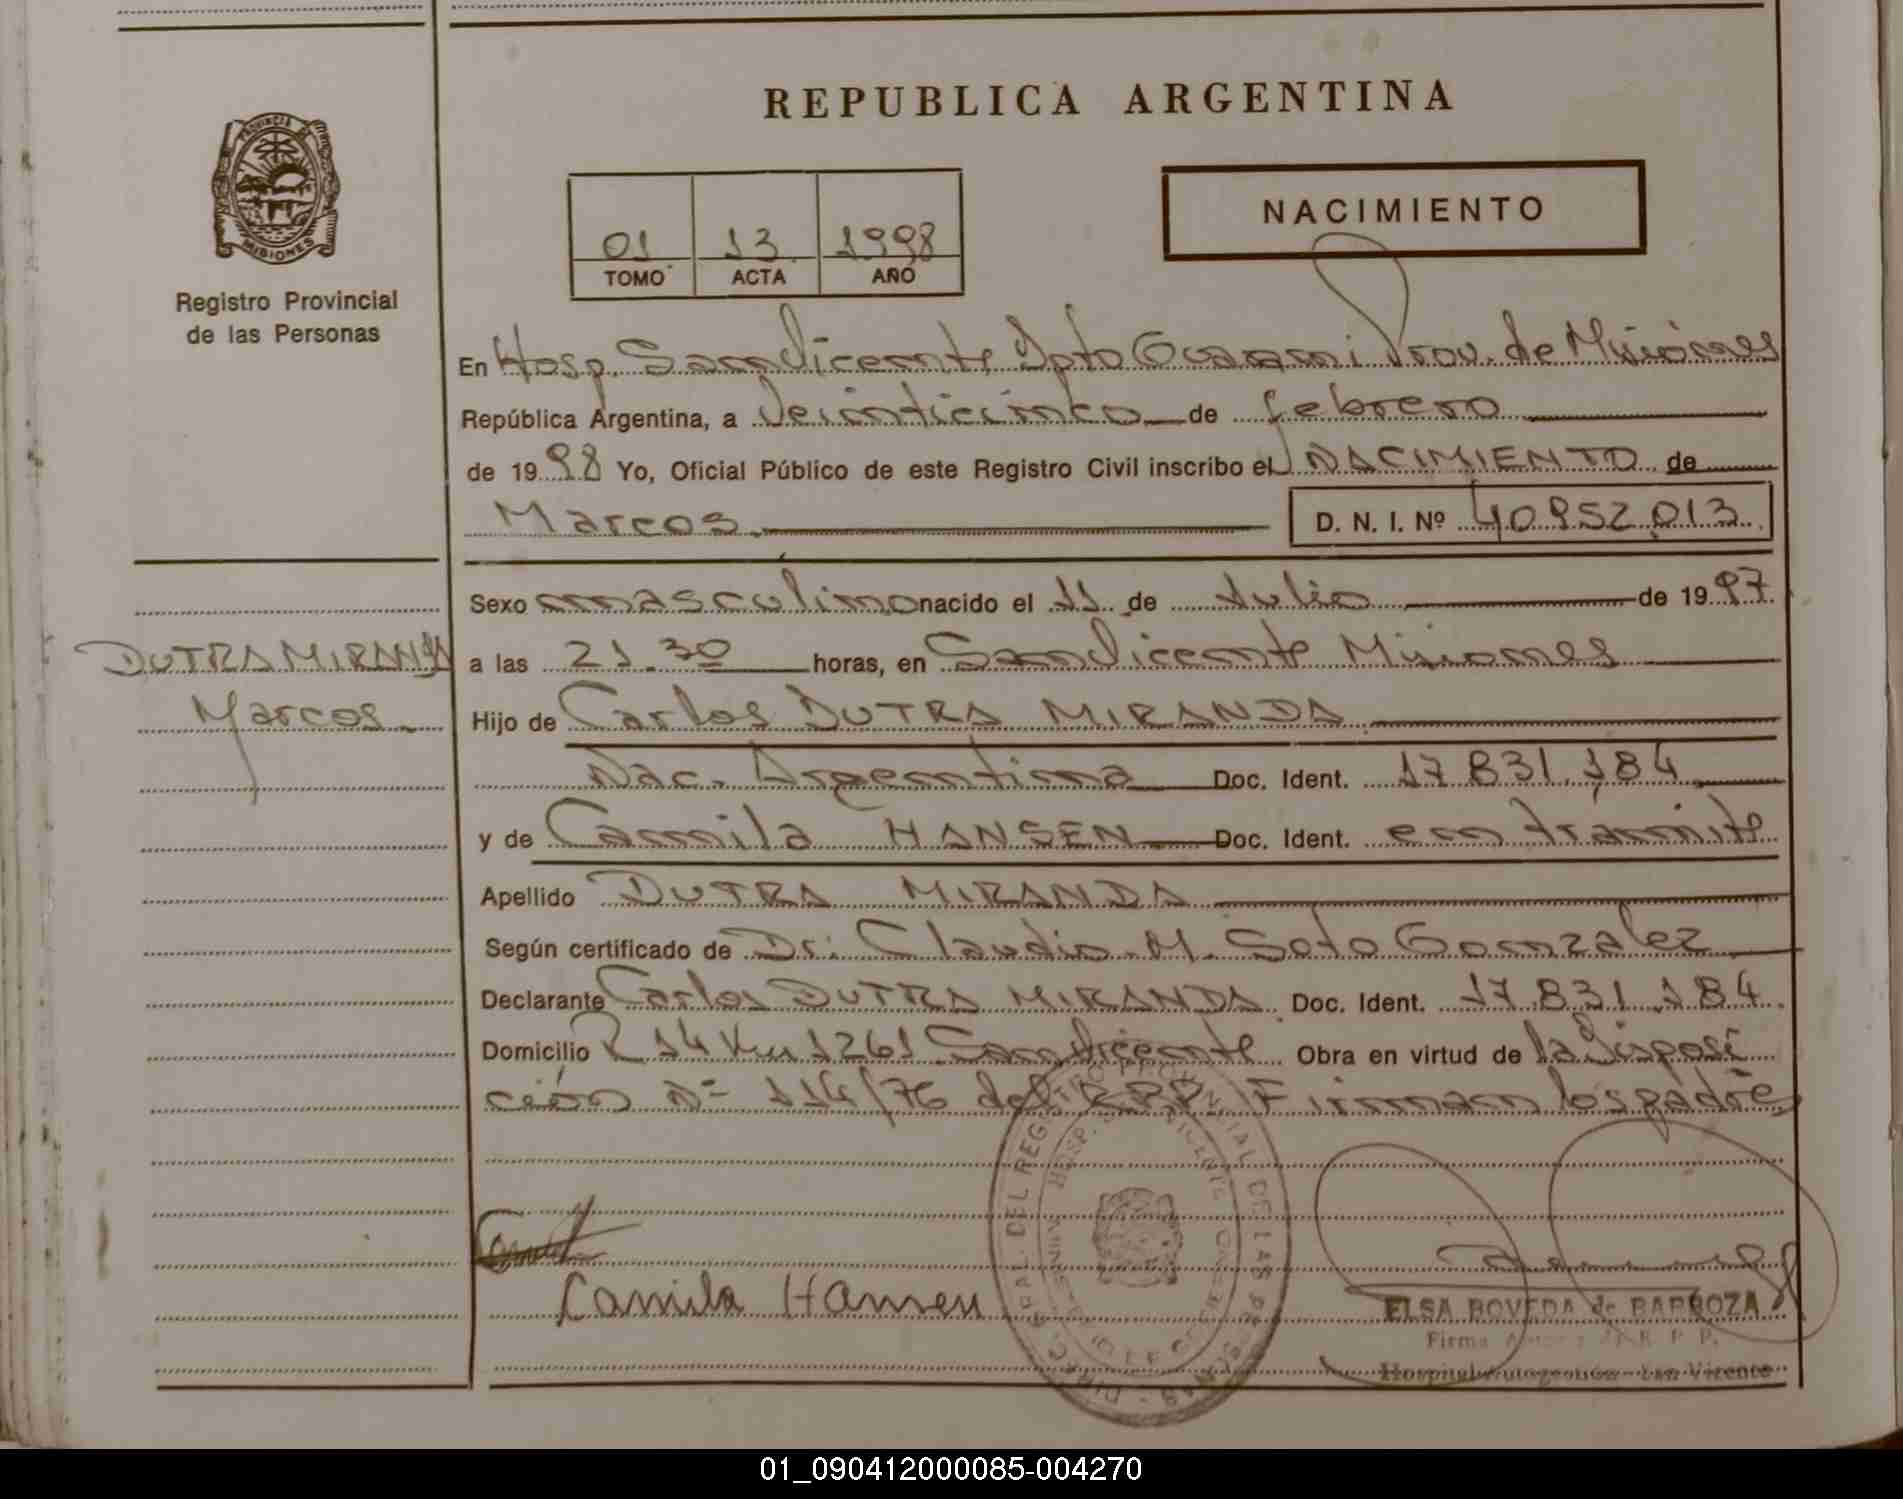 REPUBLICA ARGENTINA
PROVINCIA DE MISIONES
Registro Provincial
de las Personas
01 13 1998
TOMO ACTA AÑO
NACIMIENTO
En Hosp. San Vicente Dpto Guarani Prov. de Misiones
República Argentina, a Veinticinco de febrero
de 1998 Yo, Oficial Público de este Registro Civil inscribo el NACIMIENTO de
Marcos. D. N. I. Nº 40952.013
Sexo masculino nacido el 11 de Julio de 1997
DUTRA MIRANDA
Marcos.
a las 21.30 horas, en San Vicente Misiones
Hijo de Carlos DUTRA MIRANDA
Nac. Argentina Doc. Ident. 17.831.184
y de Camila HANSEN Doc. Ident. en trámite
Apellido DUTRA MIRANDA
Según certificado de Dr. Claudio M. Soto Gonzalez
Declarante Carlos DUTRA MIRANDA Doc. Ident. 17.831.184
Domicilio R 14 Km 1261 San Vicente Obra en virtud de la Disposi
ción Nº 114/76 del R.P.P. Firman los padres
Camila Hansen
ELSA BOVEDA de BARBOZA
Firma R. P. P.
Hospital Autogestión San Vicente
01_090412000085-004270